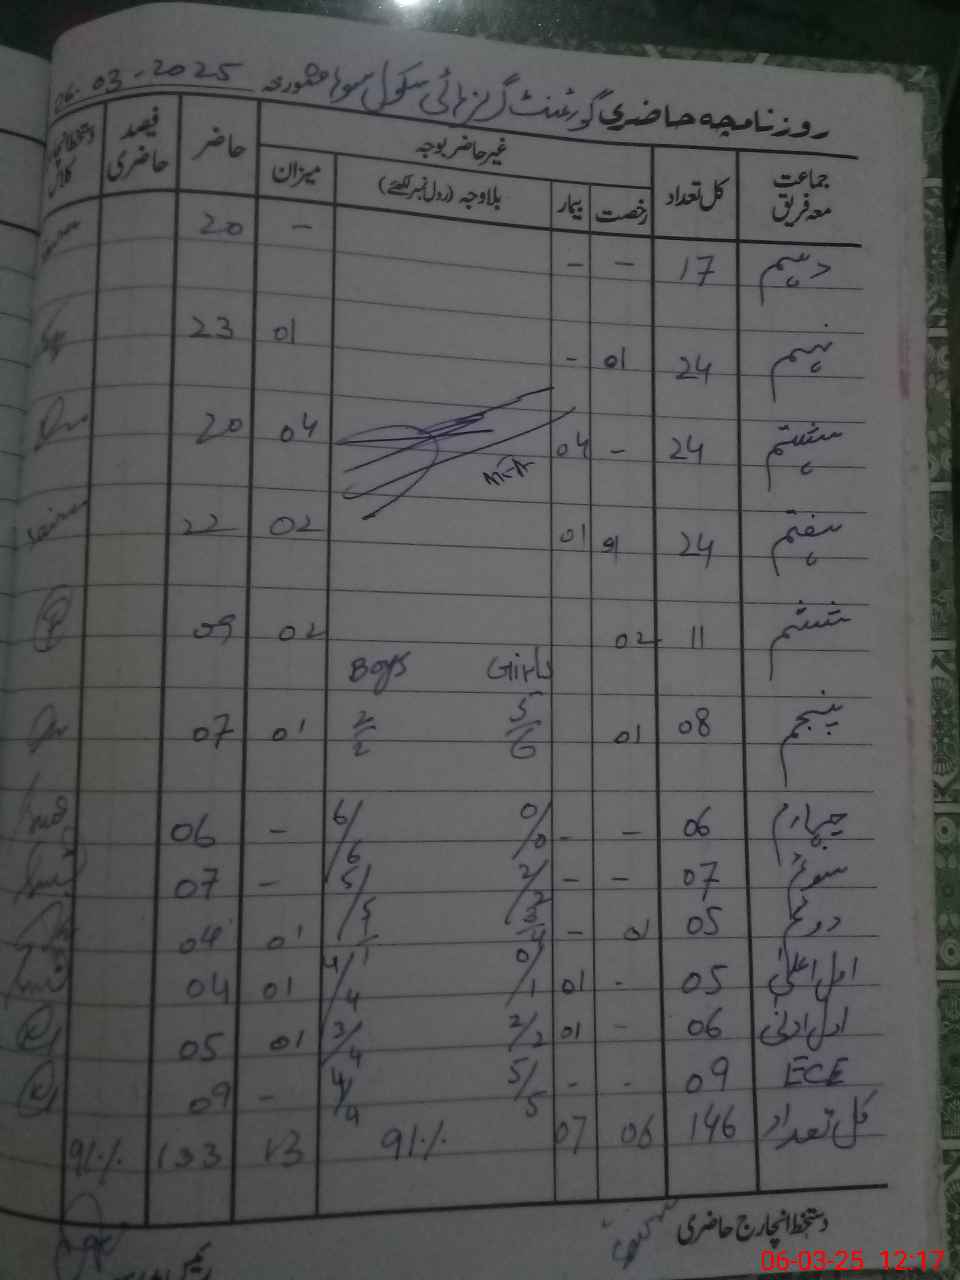 روزنامچہ حاضری گورنمنٹ گرلز ہائی سکول سوہا مورخہ 06.03-2025
جماعت معہ فریق کل تعداد غیر حاضر بوجہ حاضر فیصد حاضری دستخط انچارج کلاس
رخصت بیمار بلاوجہ (رول نمبر لکھئے) میزان
دہم 17 - - - 20
نہم 24 01 - 01 23
ہشتم 24 - 04 04 20
ہفتم 24 01 01 02 22
ششم 11 02 02 09
Boys Girls
پنجم 08 01 5/6 2/2 01 07
چہارم 06 - - 0/0 6/6 - 06
سوئم 07 - - 2/2 5/5 - 07
دوئم 05 01 - 3/4 1/1 01 04
اول اعلیٰ 05 - 01 0/1 4/4 01 04
اول ادنیٰ 06 - 01 2/2 3/4 01 05
ECE 09 - - 5/5 4/4 - 09
کل تعداد 146 06 07 91% 13 133 91%
دستخط انچارج حاضری
06-03-25 12:17